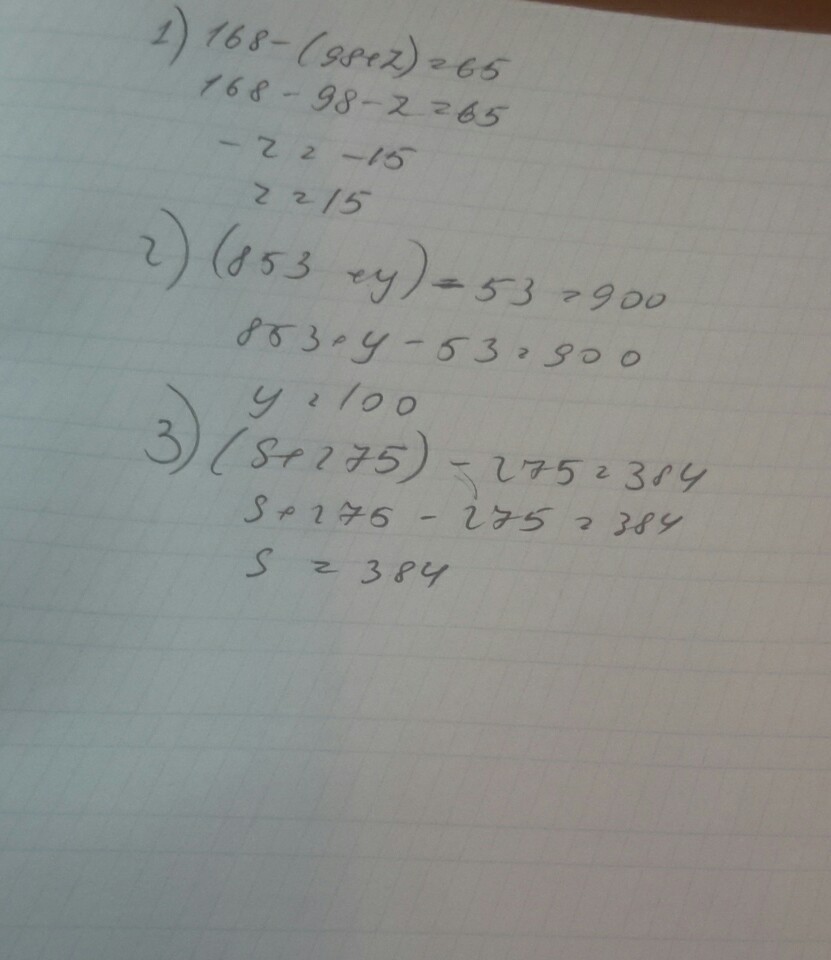 1) 168 - (98+z) = 65
168 - 98 - z = 65
- z = -15
z = 15
2) (853 + y) - 53 = 900
853 + y - 53 = 900
y = 100
3) (s + 275) - 275 = 384
s + 275 - 275 = 384
s = 384